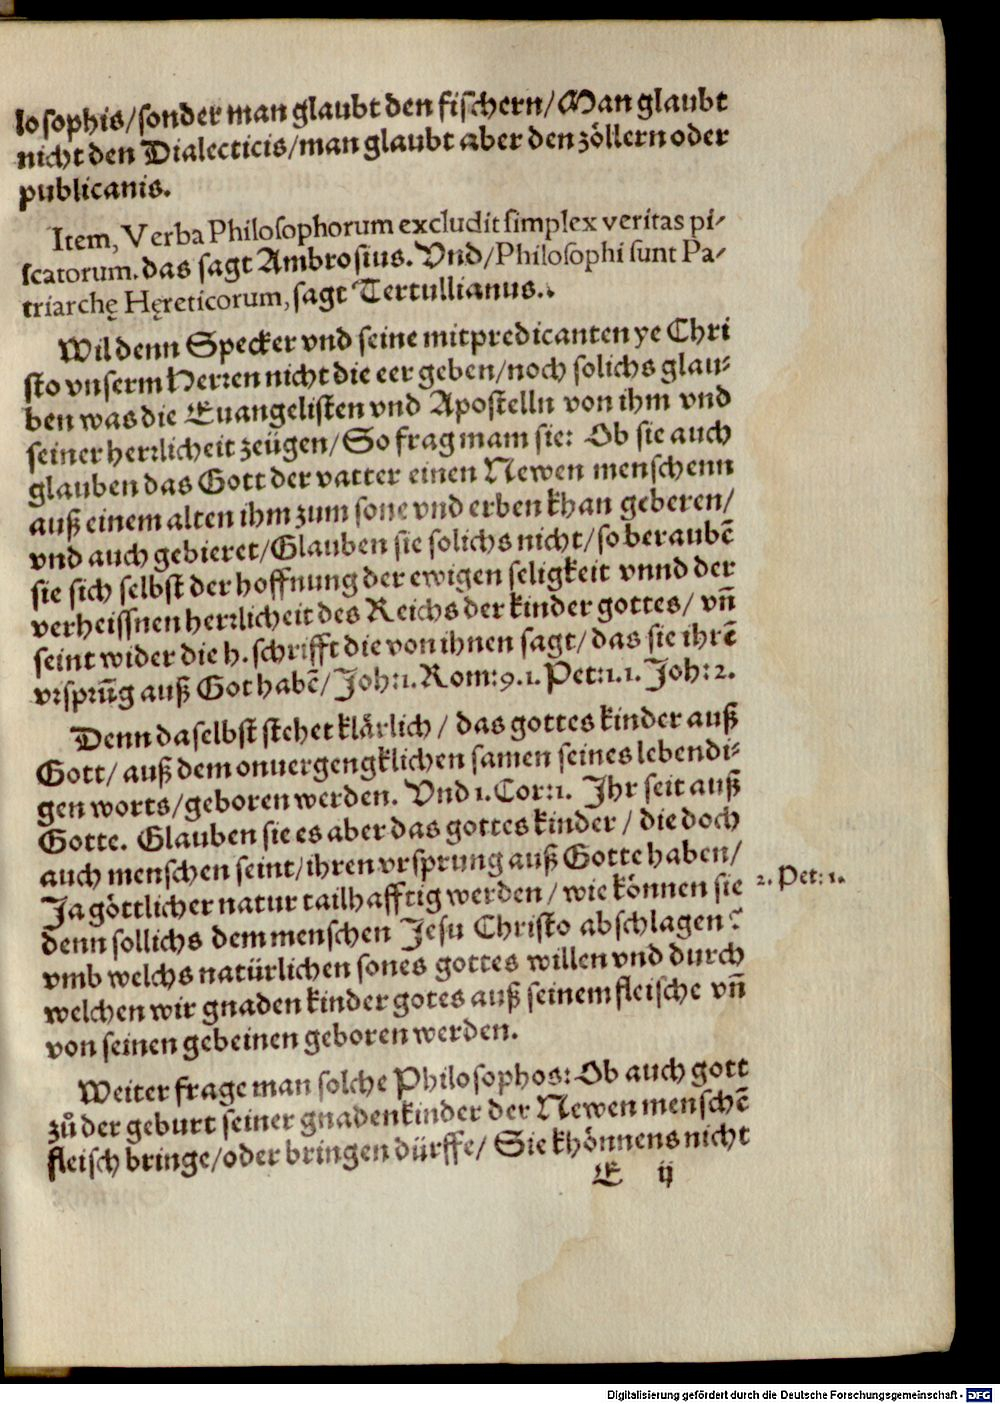 losophis/sonder man glaubt den fischern/Man glaubt
nicht den Dialecticis/man glaubt aber den zöllern oder
publicanis.
Item, Verba Philosophorum excludit simplex veritas pi-
scatorum. das sagt Ambrosius. Vnd/Philosophi sunt Pa-
triarchę Hęreticorum, sagt Tertullianus.
Wil denn Specker vnd seine mitpredicanten ye Chri
sto vnserm Herren nicht die eer geben/noch solichs glau-
ben was die Euangelisten vnd Apostelln von ihm vnd
seiner herrlicheit zeügen/So frag mam sie: Ob sie auch
glauben das Gott der vatter einen Newen menschenn
auß einem alten ihm zum sone vnd erben khan geberen/
vnd auch gebieret/Glauben sie solichs nicht/so beraubē
sie sich selbst der hoffnung der ewigen seligkeit vnnd der
verheissnen herrlicheit des Reichs der kinder gottes/ vñ
seint wider die h. schrifft die von ihnen sagt/das sie ihrē
vrsprūg auß Got habē/Joh:1. Rom:9. 1. Pet:1. 1. Joh:2.
Denn daselbst stehet klärlich/ das gottes kinder auß
Gott/ auß dem onuergengklichen samen seines lebendi-
gen worts/geboren werden. Vnd 1. Cor:1. Ihr seit auß
Gotte. Glauben sie es aber das gottes kinder/ die doch
auch menschen seint/ihren vrsprung auß Gotte haben/
Ja göttlicher natur tailhafftig werden/ wie können sie
2. Pet:1.
denn sollichs dem menschen Jesu Christo abschlagen?
vmb welchs natürlichen sones gottes willen vnd durch
welchen wir gnaden kinder gotes auß seinem fleische vñ
von seinen gebeinen geboren werden.
Weiter frage man solche Philosophos: Ob auch gott
zů der geburt seiner gnadenkinder der Newen menschē
fleisch bringe/oder bringen dürffe/ Sie khönnens nicht
E ij
Digitalisierung gefördert durch die Deutsche Forschungsgemeinschaft - DFG